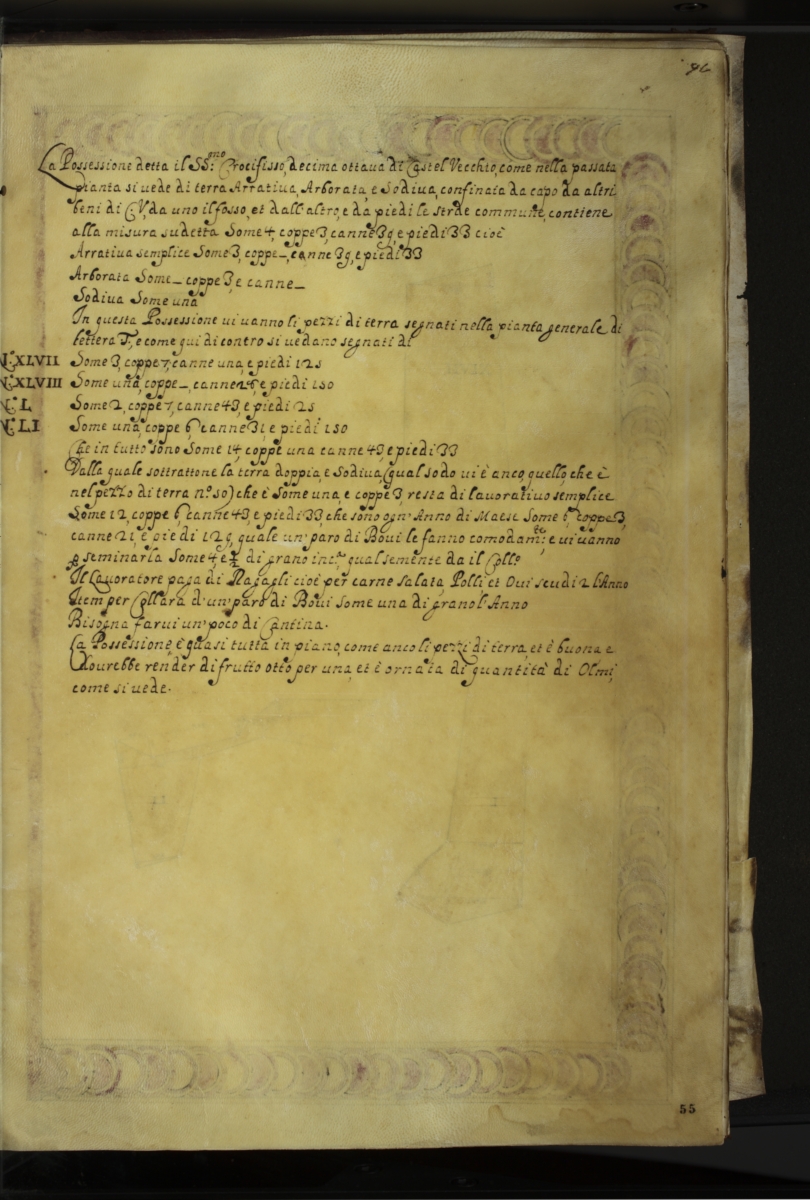 96
La Possessione detta il SS.mo Crocifisso, decima ottaua di Castel Vecchio, come nella passata
pianta si uede di terra Arratiua, Arborata, e Sodiua, confinata da capo da altri
beni di CV. da uno il fosso, et dall'altro, e da piedi le strade commune, contiene
alla misura sudetta Some 4, coppe 3, canne 39, e piedi 33 cioè
Arratiua semplice Some 3, coppe _, canne 39, e piedi 33
Arborata Some _ coppe 3, e canne _
Sodiua Some una
In questa Possessione ui uanno li pezzi di terra segnati nella pianta generale di
lettera T, e come qui di contro si uedano segnati di
CXLVII Some 3, coppe 7, canne una, e piedi 125
CXLVIII Some una, coppe _, canne 25, e piedi 150
CL Some 2, coppe 7, canne 43, e piedi 25
CLI Some una, coppe 6 canne 31, e piedi 150
Che in tutto sono Some 14, coppe una canne 43, e piedi 33
Dalla quale sottrattone la terra doppia, e Sodiua, (qual sodo ui è anco quello, che è
nel pezzo di terra n.o 50) che è Some una, e coppe 3 resta di lauoratiuo semplice
Some 12, coppe 6 canne 43, e piedi 33, che sono ogn'Anno di Maese Some 6 coppe 3,
canne 21, e piedi 129, quale un'paro di Boui le fanno comodam.te e ui uanno
p seminarla Some 4 e ½ di grano inc.a qual semente da il Coll.o
Il Lauoratore paga di Regagli cioè per carne Salata, Polli et Oui scudi 2 l'Anno
Item per Collara d'un'paro di Boui Some una di grano l'Anno
Bisogna farui un'poco di Cantina.
La Possessione è quasi tutta in piano, come anco li pezzi di terra, et è buona e
Dourebbe render di frutto otto per una, et è ornata di quantità di Olmi,
come si uede.
55